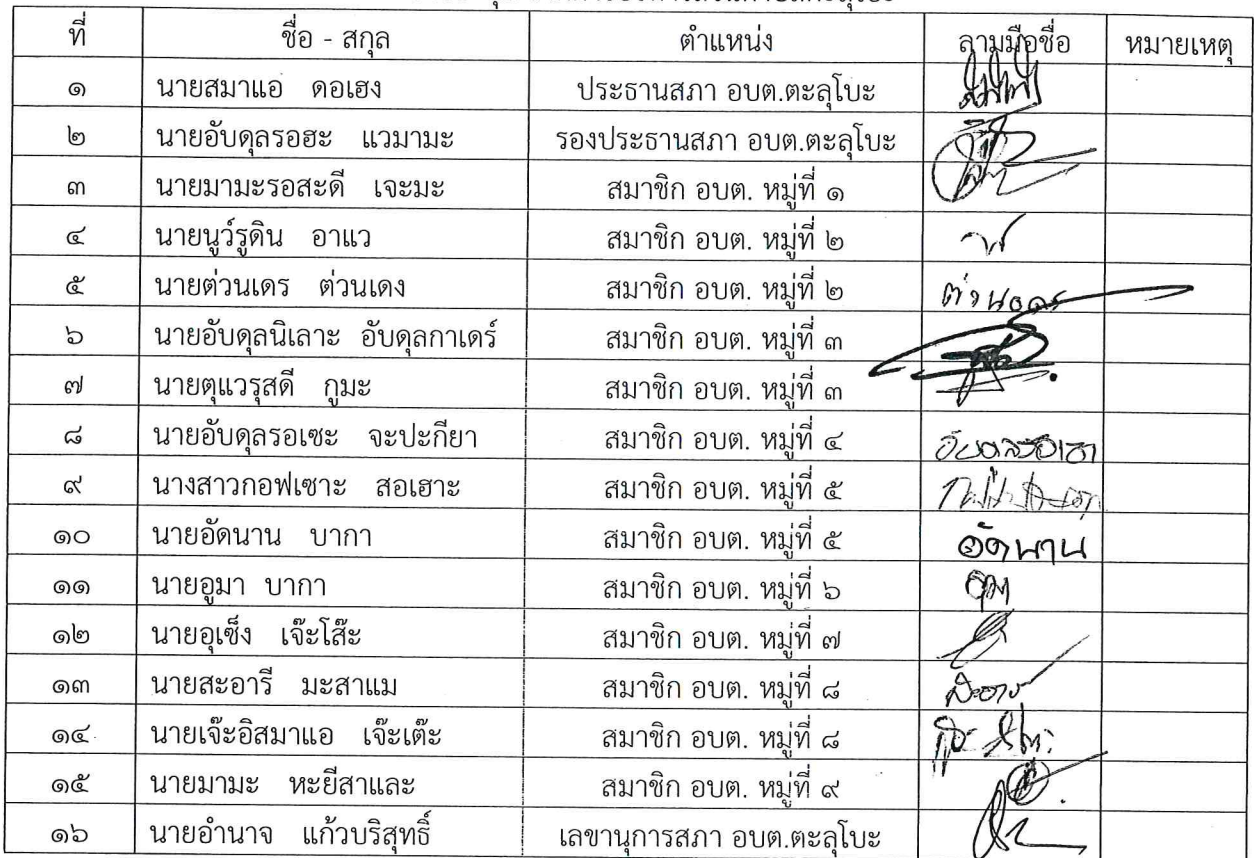 ที่ ชื่อ - สกุล ตำแหน่ง ลายมือชื่อ หมายเหตุ
๑ นายสมาแอ ดอเฮง ประธานสภา อบต.ตะลุโบะ
๒ นายอับดุลรอฮะ แวมามะ รองประธานสภา อบต.ตะลุโบะ
๓ นายมามะรอสะดี เจะมะ สมาชิก อบต. หมู่ที่ ๑
๔ นายนูว์รูดิน อาแว สมาชิก อบต. หมู่ที่ ๒
๕ นายต่วนเดร ต่วนเดง สมาชิก อบต. หมู่ที่ ๒
๖ นายอับดุลนิเลาะ อับดุลกาเดร์ สมาชิก อบต. หมู่ที่ ๓
๗ นายตุแวรุสดี กูมะ สมาชิก อบต. หมู่ที่ ๓
๘ นายอับดุลรอเซะ จะปะกียา สมาชิก อบต. หมู่ที่ ๔
๙ นางสาวกอฟเซาะ สอเฮาะ สมาชิก อบต. หมู่ที่ ๕
๑๐ นายอัดนาน บากา สมาชิก อบต. หมู่ที่ ๕ อัดนาน
๑๑ นายอูมา บากา สมาชิก อบต. หมู่ที่ ๖
๑๒ นายอุเซ็ง เจ๊ะโส๊ะ สมาชิก อบต. หมู่ที่ ๗
๑๓ นายสะอารี มะสาแม สมาชิก อบต. หมู่ที่ ๘
๑๔ นายเจ๊ะอิสมาแอ เจ๊ะเต๊ะ สมาชิก อบต. หมู่ที่ ๘
๑๕ นายมามะ หะยีสาและ สมาชิก อบต. หมู่ที่ ๙
๑๖ นายอำนาจ แก้วบริสุทธิ์ เลขานุการสภา อบต.ตะลุโบะ